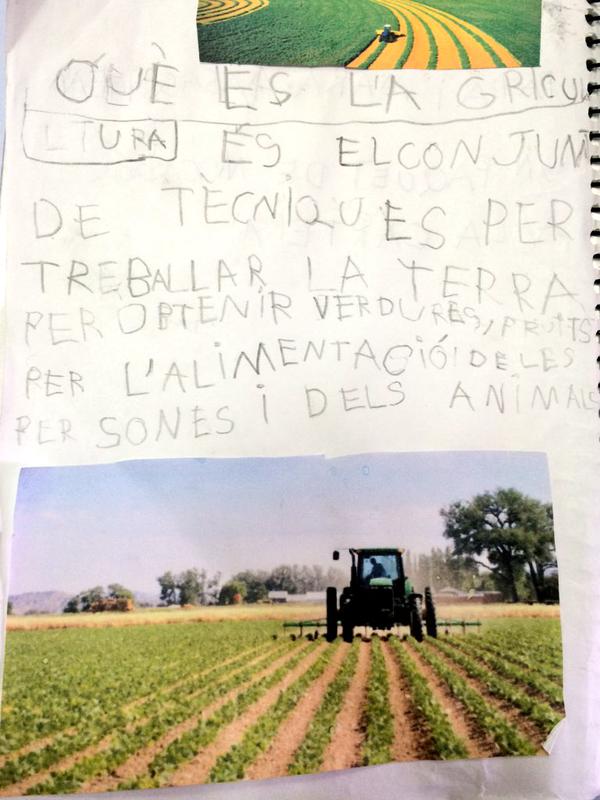 QUÈ ES L'A GRICUL
LTURA ÉS EL CONJUNT
DE TÈCNIQUES PER
TREBALLAR LA TERRA
PER OPTENIR VERDURES, FRUITS
PER L'ALIMENTACIÓ I DE LES
PERSONES I DELS ANIMALS